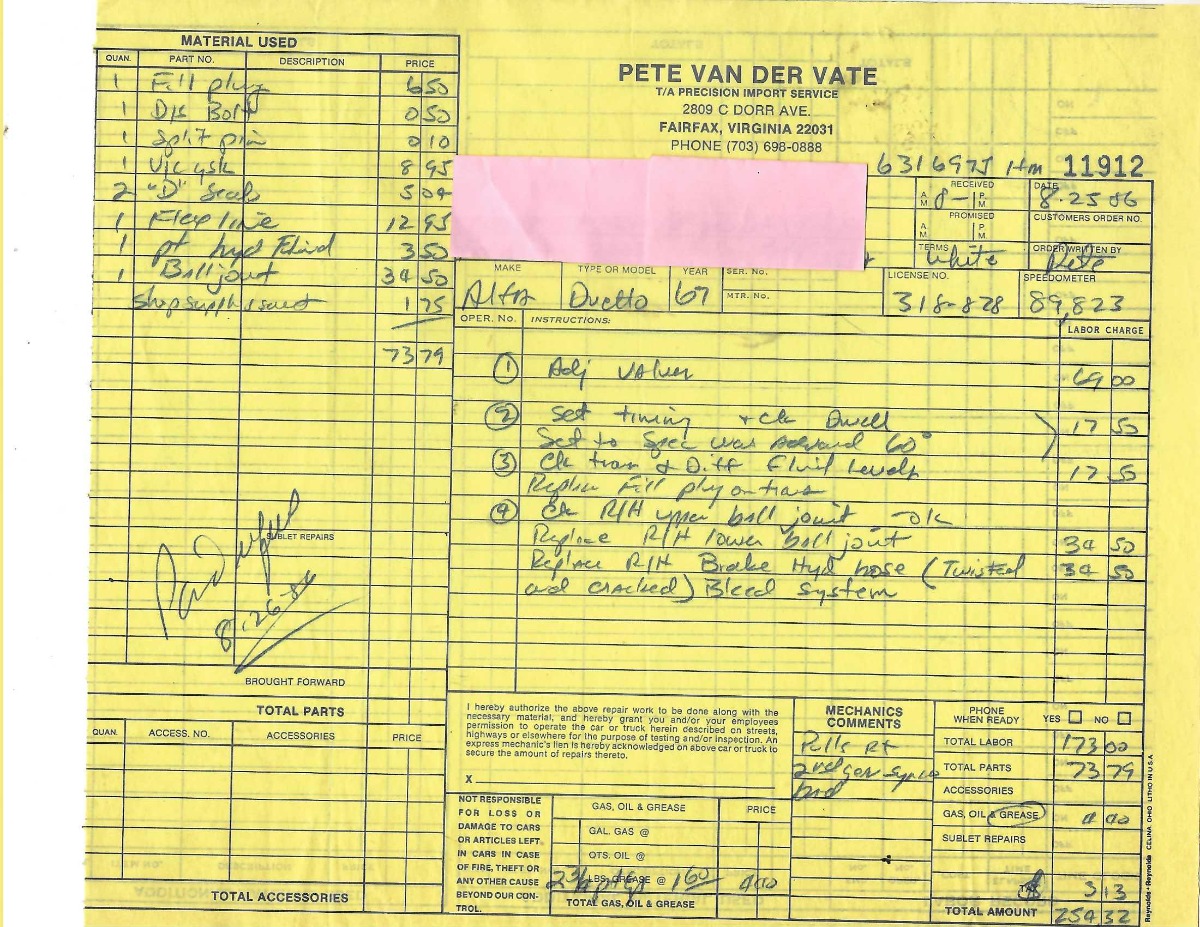 MATERIAL USED
QUAN. PART NO. DESCRIPTION PRICE
1 Fill plug 6 50
1 D/s Bolt 0 50
1 Split pin 0 10
1 V/c gsk 8 95
2 "D" Seals 5 04
1 Flex line 12 95
1 pt hyd Fluid 3 50
1 Ball joint 34 50
Shop supplies 1 75
73 79
SUBLET REPAIRS
8-26-86
BROUGHT FORWARD
TOTAL PARTS
QUAN. ACCESS. NO. ACCESSORIES PRICE
TOTAL ACCESSORIES
PETE VAN DER VATE
T/A PRECISION IMPORT SERVICE
2809 C DORR AVE.
FAIRFAX, VIRGINIA 22031
PHONE (703) 698-0888
6316975 Hm 11912
RECEIVED A.M. 8- P.M.
DATE 8-25 86
PROMISED A.M. P.M.
CUSTOMERS ORDER NO.
TERMS White
ORDER WRITTEN BY Pete
MAKE TYPE OR MODEL YEAR SER. No. LICENSE NO. SPEEDOMETER
Alfa Duetto 67 MTR. No. 318-828 89,823
OPER. No. INSTRUCTIONS: LABOR CHARGE
① Adj Valves 69 00
② Set timing + ck Dwell 17 50
Set to Spec was Advanced 60°
③ Ck trans & Diff Fluid Levels 17 50
Replace Fill plug on trans
④ Ck R/H upper ball joint - ok
Replace R/H lower ball joint 34 50
Replace R/H Brake Hyd hose (Twisted 34 50
and cracked) Bleed system
I hereby authorize the above repair work to be done along with the
necessary material, and hereby grant you and/or your employees
permission to operate the car or truck herein described on streets,
highways or elsewhere for the purpose of testing and/or inspection. An
express mechanic's lien is hereby acknowledged on above car or truck to
secure the amount of repairs thereto.
X
NOT RESPONSIBLE
FOR LOSS OR
DAMAGE TO CARS
OR ARTICLES LEFT
IN CARS IN CASE
OF FIRE, THEFT OR
ANY OTHER CAUSE
BEYOND OUR CON-
TROL.
GAS, OIL & GREASE PRICE
GAL. GAS @
QTS. OIL @
LBS. GREASE @ 1 60 4 40
TOTAL GAS, OIL & GREASE
MECHANICS
COMMENTS
Pulls Rt
2nd gear syncro
bad
PHONE
WHEN READY YES NO
TOTAL LABOR 173 00
TOTAL PARTS 73 79
ACCESSORIES
GAS, OIL & GREASE 4 40
SUBLET REPAIRS
3 13
TOTAL AMOUNT 254 32
Reynolds+Reynolds CELINA OHIO LITHO IN U.S.A.